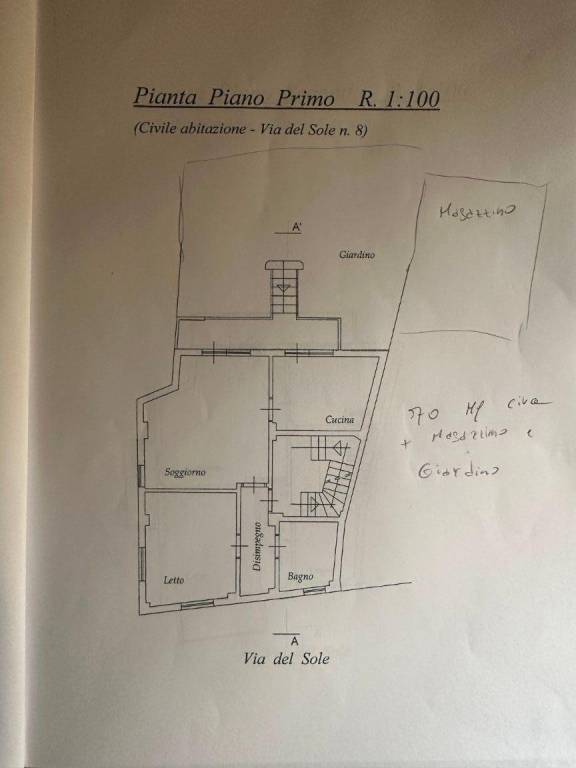 Pianta Piano Primo R. 1:100
(Civile abitazione - Via del Sole n. 8)
Magazzino
A'
Giardino
Cucina
70 Mq circa
+ Magazzino e
Giardino
Soggiorno
Disimpegno
Letto
Bagno
A
Via del Sole